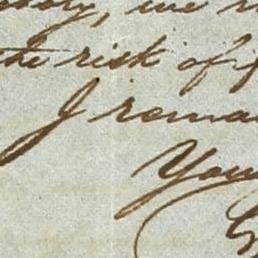 we
the risk of
I remai
You